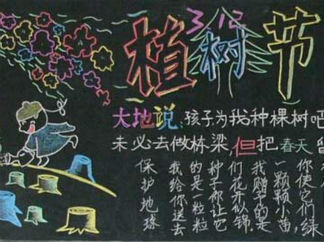 3/12
植树节
大地说、孩子为我种棵树吧
未必去做栋梁,但把春天留
你使它们绿
一颗颗小苗,
我赠予的是
们花木似锦,
种子你让它
的是一粒粒
我给你送去
保护地球